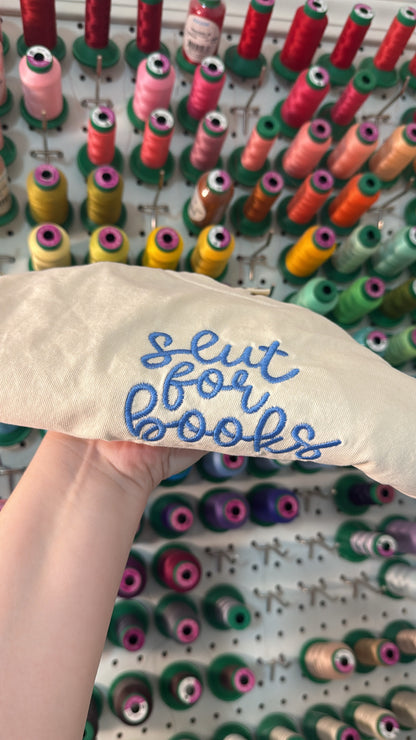 slut
for
books